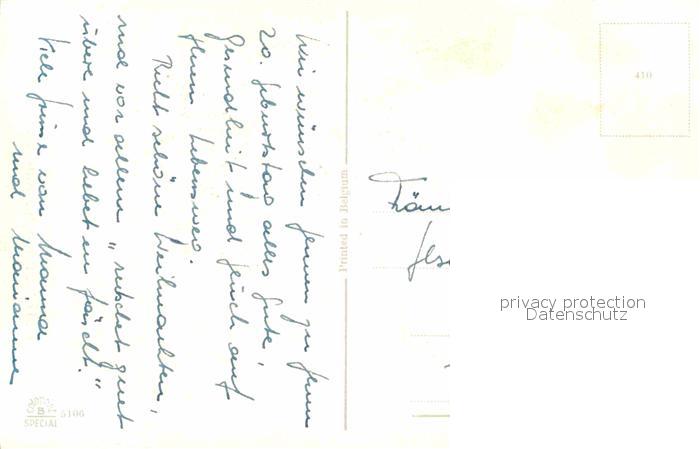 Wir wünschen Ihnen zu Ihrem
20. Geburtstag alles Gute,
Gesundheit und Glück auf
Ihrem Lebensweg.
Recht schöne Weihnachten,
und vor allem "rutschet guet
übere und bebet en
Viele Grüsse von Mamma
und Marianne
Printed in Belgium
410
5106
SPECIAL
privacy protection
Datenschutz